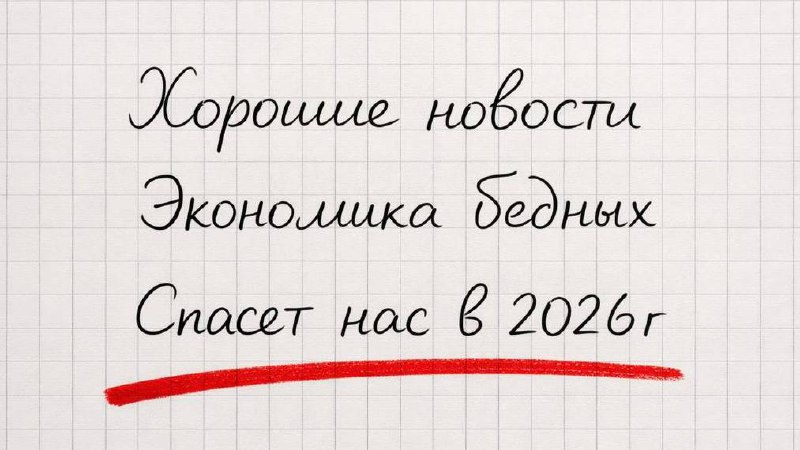 Хорошие новости
Экономика бедных
Спасет нас в 2026г